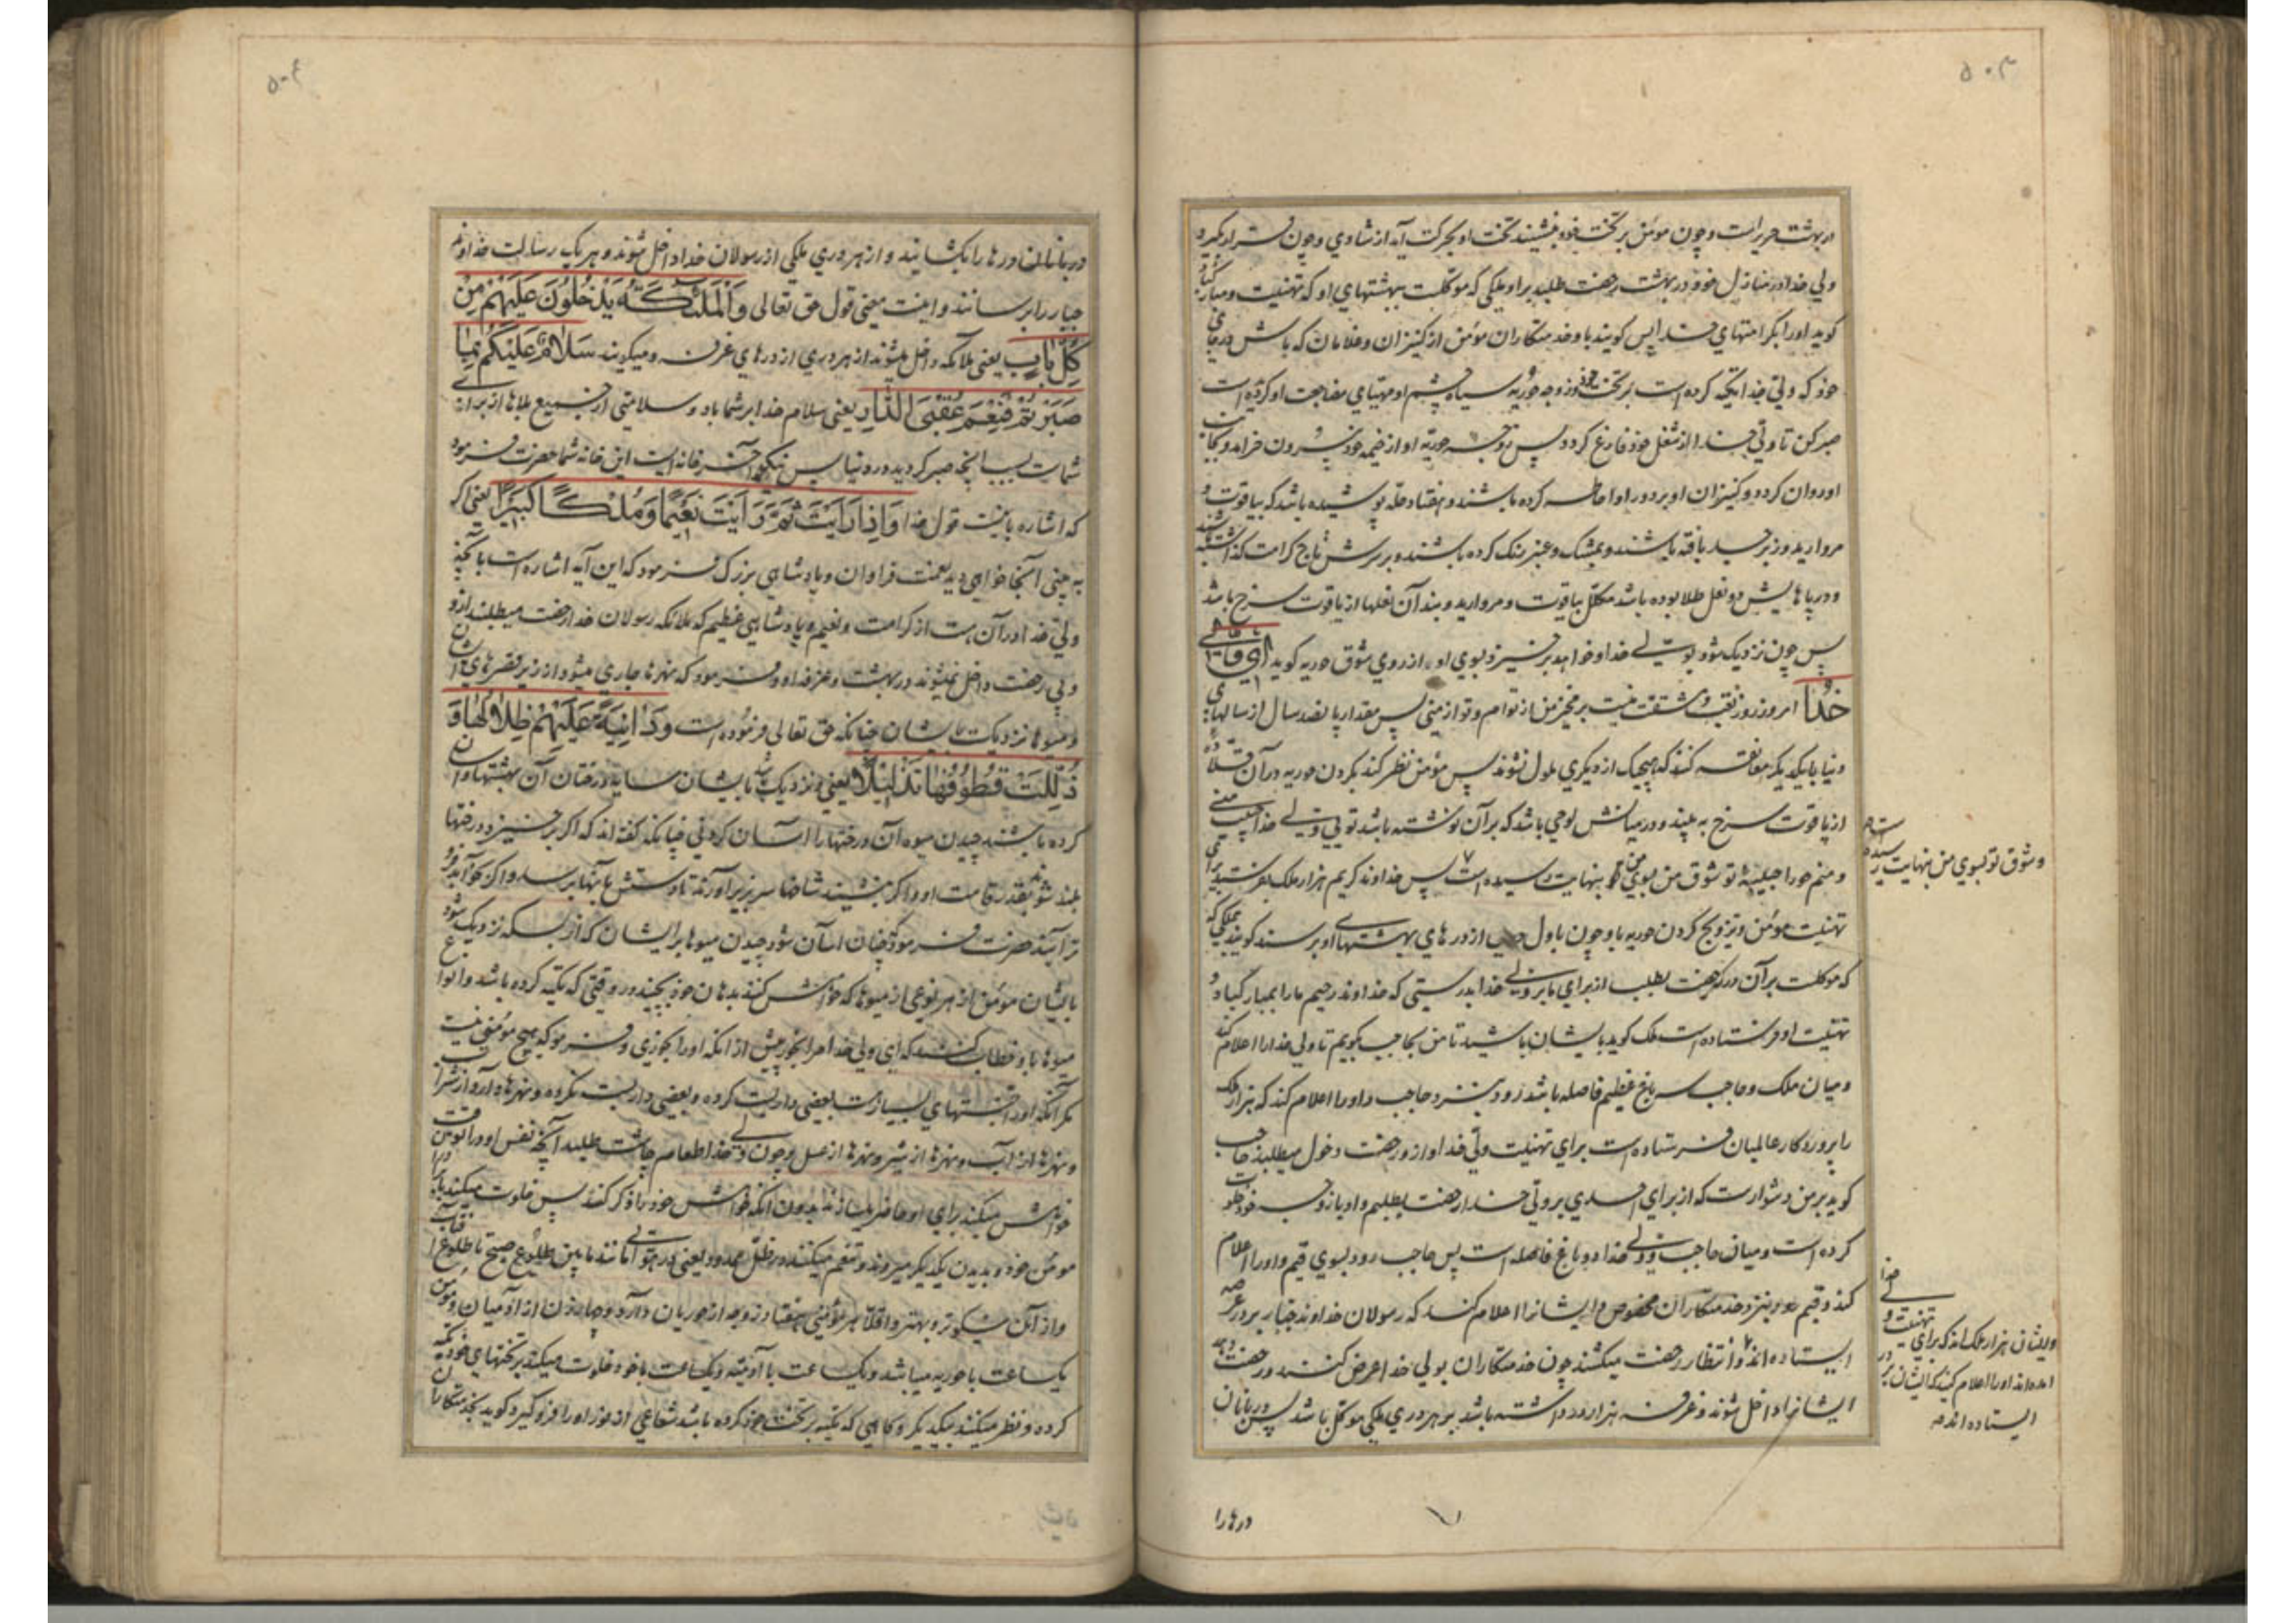 ۵۰۳
در بهشت حریر است و چون مؤمن بر تخت خود بنشیند تخت او بحرکت آید از شادی و چون قرار گیرد
ولی خدا در منازل خود در بهشت رخصت طلبد بر او ملکی که موکلست ببهشتهای او که تهنیت و مبارکباد
کوید او را بکرامتهای خدا پس کویند باو خدمتکاران مؤمن از کنیزان و غلامان که باش در جای
خود که ولی خدا تکیه کرده است بر تخت خود و زوجه حوریه سیاه چشم او مهیای مضاجعت او کردیده است
صبر کن تا ولی خدا از شغل خود فارغ کردد پس زوجه حوریه او از خیمه خود بیرون خرامد و بجانب
او روان کردد و کنیزان او بر دور او احاطه کرده باشند و هفتاد حله پوشیده باشد که بیاقوت و
مروارید و زبرجد بافته باشند و بمشک و عنبر رنک کرده باشند و بر سرش تاج کرامت کذاشته باشند
و در پاهایش دو نعل طلا بوده باشد مکلل بیاقوت و مروارید و بند آن نعلها از یاقوت سرخ باشد
پس چون نزدیک شود بولی خدا و خواهد برخیزد بسوی او از روی شوق حوریه کوید ای ولی
خدا امروز روز تعب و مشقت نیست برمخیز من از توام و تو از منی پس مقدار پانصد سال از سالهای
دنیا با یکدیکر معانقه کنند که هیچیک از دیکری ملول نشوند پس مؤمن نظر کند بکردن حوریه در آن قلاده
از یاقوت سرخ به بیند و در میانش لوحی باشد که بر آن نوشته باشد تویی ولی خدا حبیب منی
و منم حورا حبیبه تو شوق من بسوی تو بنهایت رسیده است پس خداوند کریم هزار ملک بفرستد برای
تهنیت مؤمن و تزویج کردن حوریه باو چون باول در از درهای بهشتهای او برسند کویند بملکی که
که موکلست بر آن در که رخصت بطلب از برای ما بر ولی خدا بدرستی که خداوند رحیم ما را بمبارکباد و
تهنیت او فرستاده است ملک کوید بایشان باشید تا من بحاجب بکویم تا ولی خدا را اعلام کند
و میان ملک و حاجب سه باغ عظیم فاصله باشد رود بنزد حاجب و او را اعلام کند که هزار ملک
را پروردکار عالمیان فرستاده است برای تهنیت ولی خدا و از او رخصت دخول میطلبند حاجب
کوید بر من دشوار است که از برای احدی بر ولی خدا رخصت بطلبم و او با زوجه خود خلوت
کرده است و میان حاجب و ولی خدا دو باغ فاصله است پس حاجب رود بسوی قیم و او را اعلام
کند و قیم رود بنزد خدمتکاران مخصوص و ایشان را اعلام کند که رسولان خداوند جبار بر در عرصه
ایستاده اند و انتظار رخصت میکشند چون خدمتکاران بولی خدا عرض کنند و رخصت دهد
ایشان داخل شوند و غرفه هزار در داشته باشد بر هر دری ملکی موکل باشد پس دربانان
و شوق تو بسوی من بنهایت رسیده است
و ایشان هزار ملک اند که برای تهنیت ولی خدا
آمده اند او را اعلام کنید که ایشان بر در
ایستاده اند
درها را
۵۰۴
دربانان درها را بکشایند و از هر دری ملکی از رسولان خدا داخل شوند و هر یک رسالت خداوند
جبار را برسانند و اینست معنی قول حق تعالی وَالْمَلٰئِكَةُ يَدْخُلُونَ عَلَيْهِمْ مِنْ
كُلِّ بَابٍ یعنی ملائکه داخل میشوند از هر دری از درهای غرفه و میکویند سَلَامٌ عَلَيْكُمْ بِمَا
صَبَرْتُمْ فَنِعْمَ عُقْبَى الدَّارِ یعنی سلام خدا بر شما باد و سلامتی از جمیع بلاها از برای
شماست بسبب آنچه صبر کردید در دنیا پس نیکو آخر خانه ایست این خانه شما حضرت فرمود
که اشاره باینست قول خدا وَاِذَا رَاَيْتَ ثَمَّ رَاَيْتَ نَعِيمًا وَمُلْكًا كَبِيرًا یعنی اکر
به بینی آنجا خواهی دید نعمت فراوان و پادشاهی بزرک فرمود که این آیه اشاره است بآنچه
ولی خدا در آن هست از کرامت و نعیم و پادشاهی عظیم که ملائکه رسولان خدا رخصت میطلبند از او
و بی رخصت داخل نمیشوند در بهشت و غرفه او و فرمود که نهرها جاری میشود از زیر قصرهای ایشان
و میوها نزدیکست بایشان چنانکه حق تعالی فرموده است وَدَانِيَةً عَلَيْهِمْ ظِلَالُهَا وَ
ذُلِّلَتْ قُطُوفُهَا تَذْلِيلًا یعنی و نزدیک باشد بایشان سایه درختان آن بهشتها و آسان
کرده باشند چیدن میوه آن درختها را آسان کردنی چنانکه کفته اند که اکر برخیزد درختها
بلند شود بقدر قامت او و اکر بنشیند شاخها سر بزیر آورند تا دستش بآنها برسد و اکر بخوابد فرو
تر آیند حضرت فرمود چنان آسان شود چیدن میوها بر ایشان که از بسکه نزدیک شود
بایشان مؤمن از هر نوعی از میوها که خواهش کند بدهان خود بچیند در وقتی که تکیه کرده باشد و انواع
میوها باو خطاب کنند که ای ولی خدا مرا بخور پیش از آنکه او را بخوری و فرمود که هیچ مؤمنی نیست
مکر آنکه او را بهشتهای بسیار هست بعضی داربست کرده و بعضی داربست نکرده و نهرها دارد از شراب
و نهرها از آب و نهرها از شیر و نهرها از عسل و چون ولی خدا طعام چاشت طلبد آنچه نفس او در آنوقت
خواهش میکند برای او حاضر میسازند بدون آنکه خواهش خود را ذکر کند پس خلوت میکند با برادران
مؤمن خود و بدیدن یکدیکر میروند و تنعم میکنند در ظل ممدود یعنی در هوائی مانند مابین طلوع صبح تا طلوع آفتاب
و از آن نیکوتر و بهتر و اقلا هر مؤمنی هفتاد زوجه از حوریان دارد و چهار زن از آدمیان و مؤمن
یکساعت با حوریه میباشد و یکساعت با آدمیه و یکساعت با خود خلوت میکند بر تختهای خود تکیه
کرده و نظر میکنند بیکدیکر و کاهی که تکیه بر تخت خود کرده باشد شعاعی از نور او را فرو کیرد کوید بخدمتکاران